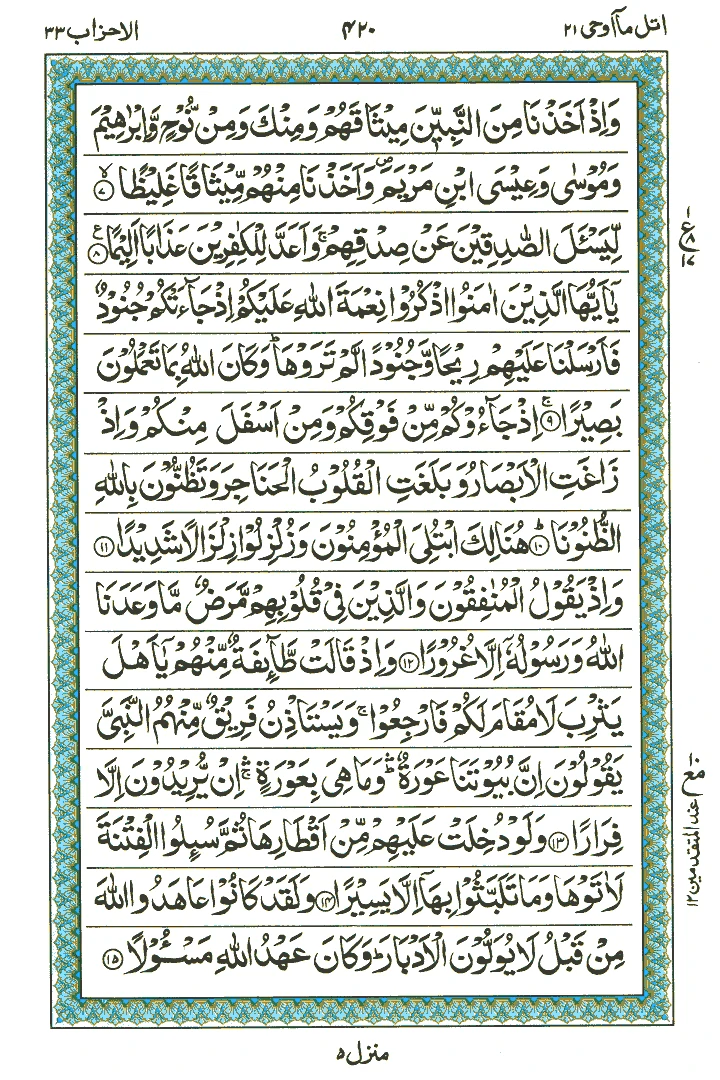 اتل مآ اوحی ۲۱
۴۲۰
الاحزاب ۳۳
وَاِذْ اَخَذْنَا مِنَ النَّبِيّٖنَ مِيْثَاقَهُمْ وَمِنْكَ وَمِنْ نُّوْحٍ وَّاِبْرٰهِيْمَ
وَمُوْسٰى وَعِيْسَى ابْنِ مَرْيَمَ ۪ وَاَخَذْنَا مِنْهُمْ مِّيْثَاقًا غَلِيْظًا ۙ﴿۷﴾
لِّيَسْـَٔلَ الصّٰدِقِيْنَ عَنْ صِدْقِهِمْ ۚ وَاَعَدَّ لِلْكٰفِرِيْنَ عَذَابًا اَلِيْمًا ﴿۸﴾ع
يٰۤاَيُّهَا الَّذِيْنَ اٰمَنُوا اذْكُرُوْا نِعْمَةَ اللّٰهِ عَلَيْكُمْ اِذْ جَآءَتْكُمْ جُنُوْدٌ
فَاَرْسَلْنَا عَلَيْهِمْ رِيْحًا وَّجُنُوْدًا لَّمْ تَرَوْهَا ؕ وَكَانَ اللّٰهُ بِمَا تَعْمَلُوْنَ
بَصِيْرًا ۚ﴿۹﴾ اِذْ جَآءُوْكُمْ مِّنْ فَوْقِكُمْ وَمِنْ اَسْفَلَ مِنْكُمْ وَاِذْ
زَاغَتِ الْاَبْصَارُ وَبَلَغَتِ الْقُلُوْبُ الْحَنَاجِرَ وَتَظُنُّوْنَ بِاللّٰهِ
الظُّنُوْنَا ؕ﴿۱۰﴾ هُنَالِكَ ابْتُلِيَ الْمُؤْمِنُوْنَ وَزُلْزِلُوْا زِلْزَالًا شَدِيْدًا ﴿۱۱﴾
وَاِذْ يَقُوْلُ الْمُنٰفِقُوْنَ وَالَّذِيْنَ فِيْ قُلُوْبِهِمْ مَّرَضٌ مَّا وَعَدَنَا
اللّٰهُ وَرَسُوْلُهٗۤ اِلَّا غُرُوْرًا ﴿۱۲﴾ وَاِذْ قَالَتْ طَّآئِفَةٌ مِّنْهُمْ يٰۤاَهْلَ
يَثْرِبَ لَا مُقَامَ لَكُمْ فَارْجِعُوْا ۚ وَيَسْتَاْذِنُ فَرِيْقٌ مِّنْهُمُ النَّبِيَّ
يَقُوْلُوْنَ اِنَّ بُيُوْتَنَا عَوْرَةٌ ؕۛ وَمَا هِيَ بِعَوْرَةٍ ۚۛ اِنْ يُّرِيْدُوْنَ اِلَّا
فِرَارًا ﴿۱۳﴾ وَلَوْ دُخِلَتْ عَلَيْهِمْ مِّنْ اَقْطَارِهَا ثُمَّ سُىِٕلُوا الْفِتْنَةَ
لَاٰتَوْهَا وَمَا تَلَبَّثُوْا بِهَاۤ اِلَّا يَسِيْرًا ﴿۱۴﴾ وَلَقَدْ كَانُوْا عَاهَدُوا اللّٰهَ
مِنْ قَبْلُ لَا يُوَلُّوْنَ الْاَدْبَارَ ؕ وَكَانَ عَهْدُ اللّٰهِ مَسْـُٔوْلًا ﴿۱۵﴾
مع عند المتقدمین ۱۲
منزل ۵